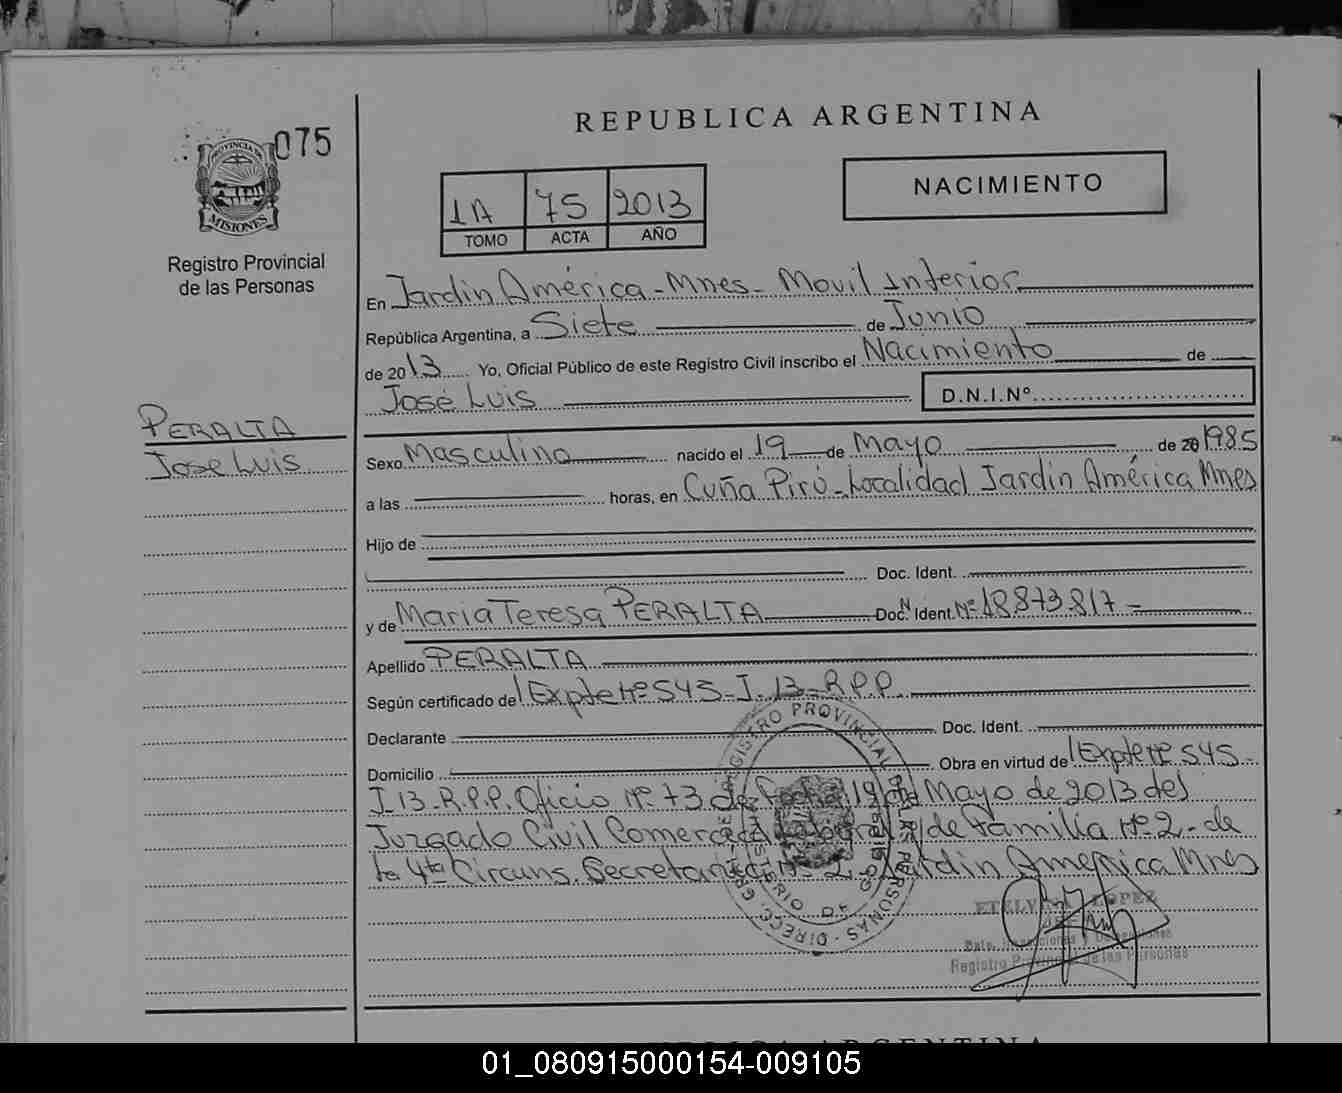 REPUBLICA ARGENTINA
075
PROVINCIA DE
MISIONES
Registro Provincial
de las Personas
1A 75 2013
TOMO ACTA AÑO
NACIMIENTO
En Jardín América - Mnes - Movil Interior
República Argentina, a Siete de Junio
de 2013 Yo, Oficial Público de este Registro Civil inscribo el Nacimiento de
José Luis D.N.I.Nº
PERALTA
José Luis
Sexo Masculino nacido el 19 de Mayo de 20 1985
a las horas, en Cuña Pirú - Localidad Jardín América Mnes
Hijo de
Doc. Ident.
y de María Teresa PERALTA Doc. N Ident. Nº 18.873.817 -
Apellido PERALTA
Según certificado del Expte Nº 545 - J. 13 - R.P.P.
Declarante Doc. Ident.
Domicilio Obra en virtud del Expte Nº 545 -
J 13 - R.P.P. Oficio Nº 73 de Fecha 19 de Mayo de 2013 del
Juzgado Civil Comercial Laboral y de Familia Nº 2 - de
la 4ta Circuns. Secretaría Nº 2 Jardín América Mnes
REGISTRO PROVINCIAL DE LAS PERSONAS - DIRECC. GRAL.
MINISTERIO DE GOBIERNO
ETELVINA LOPEZ
JEFA
Dpto. Inscripciones y
Registro Provincial de las Personas
REPUBLICA ARGENTINA
01_080915000154-009105